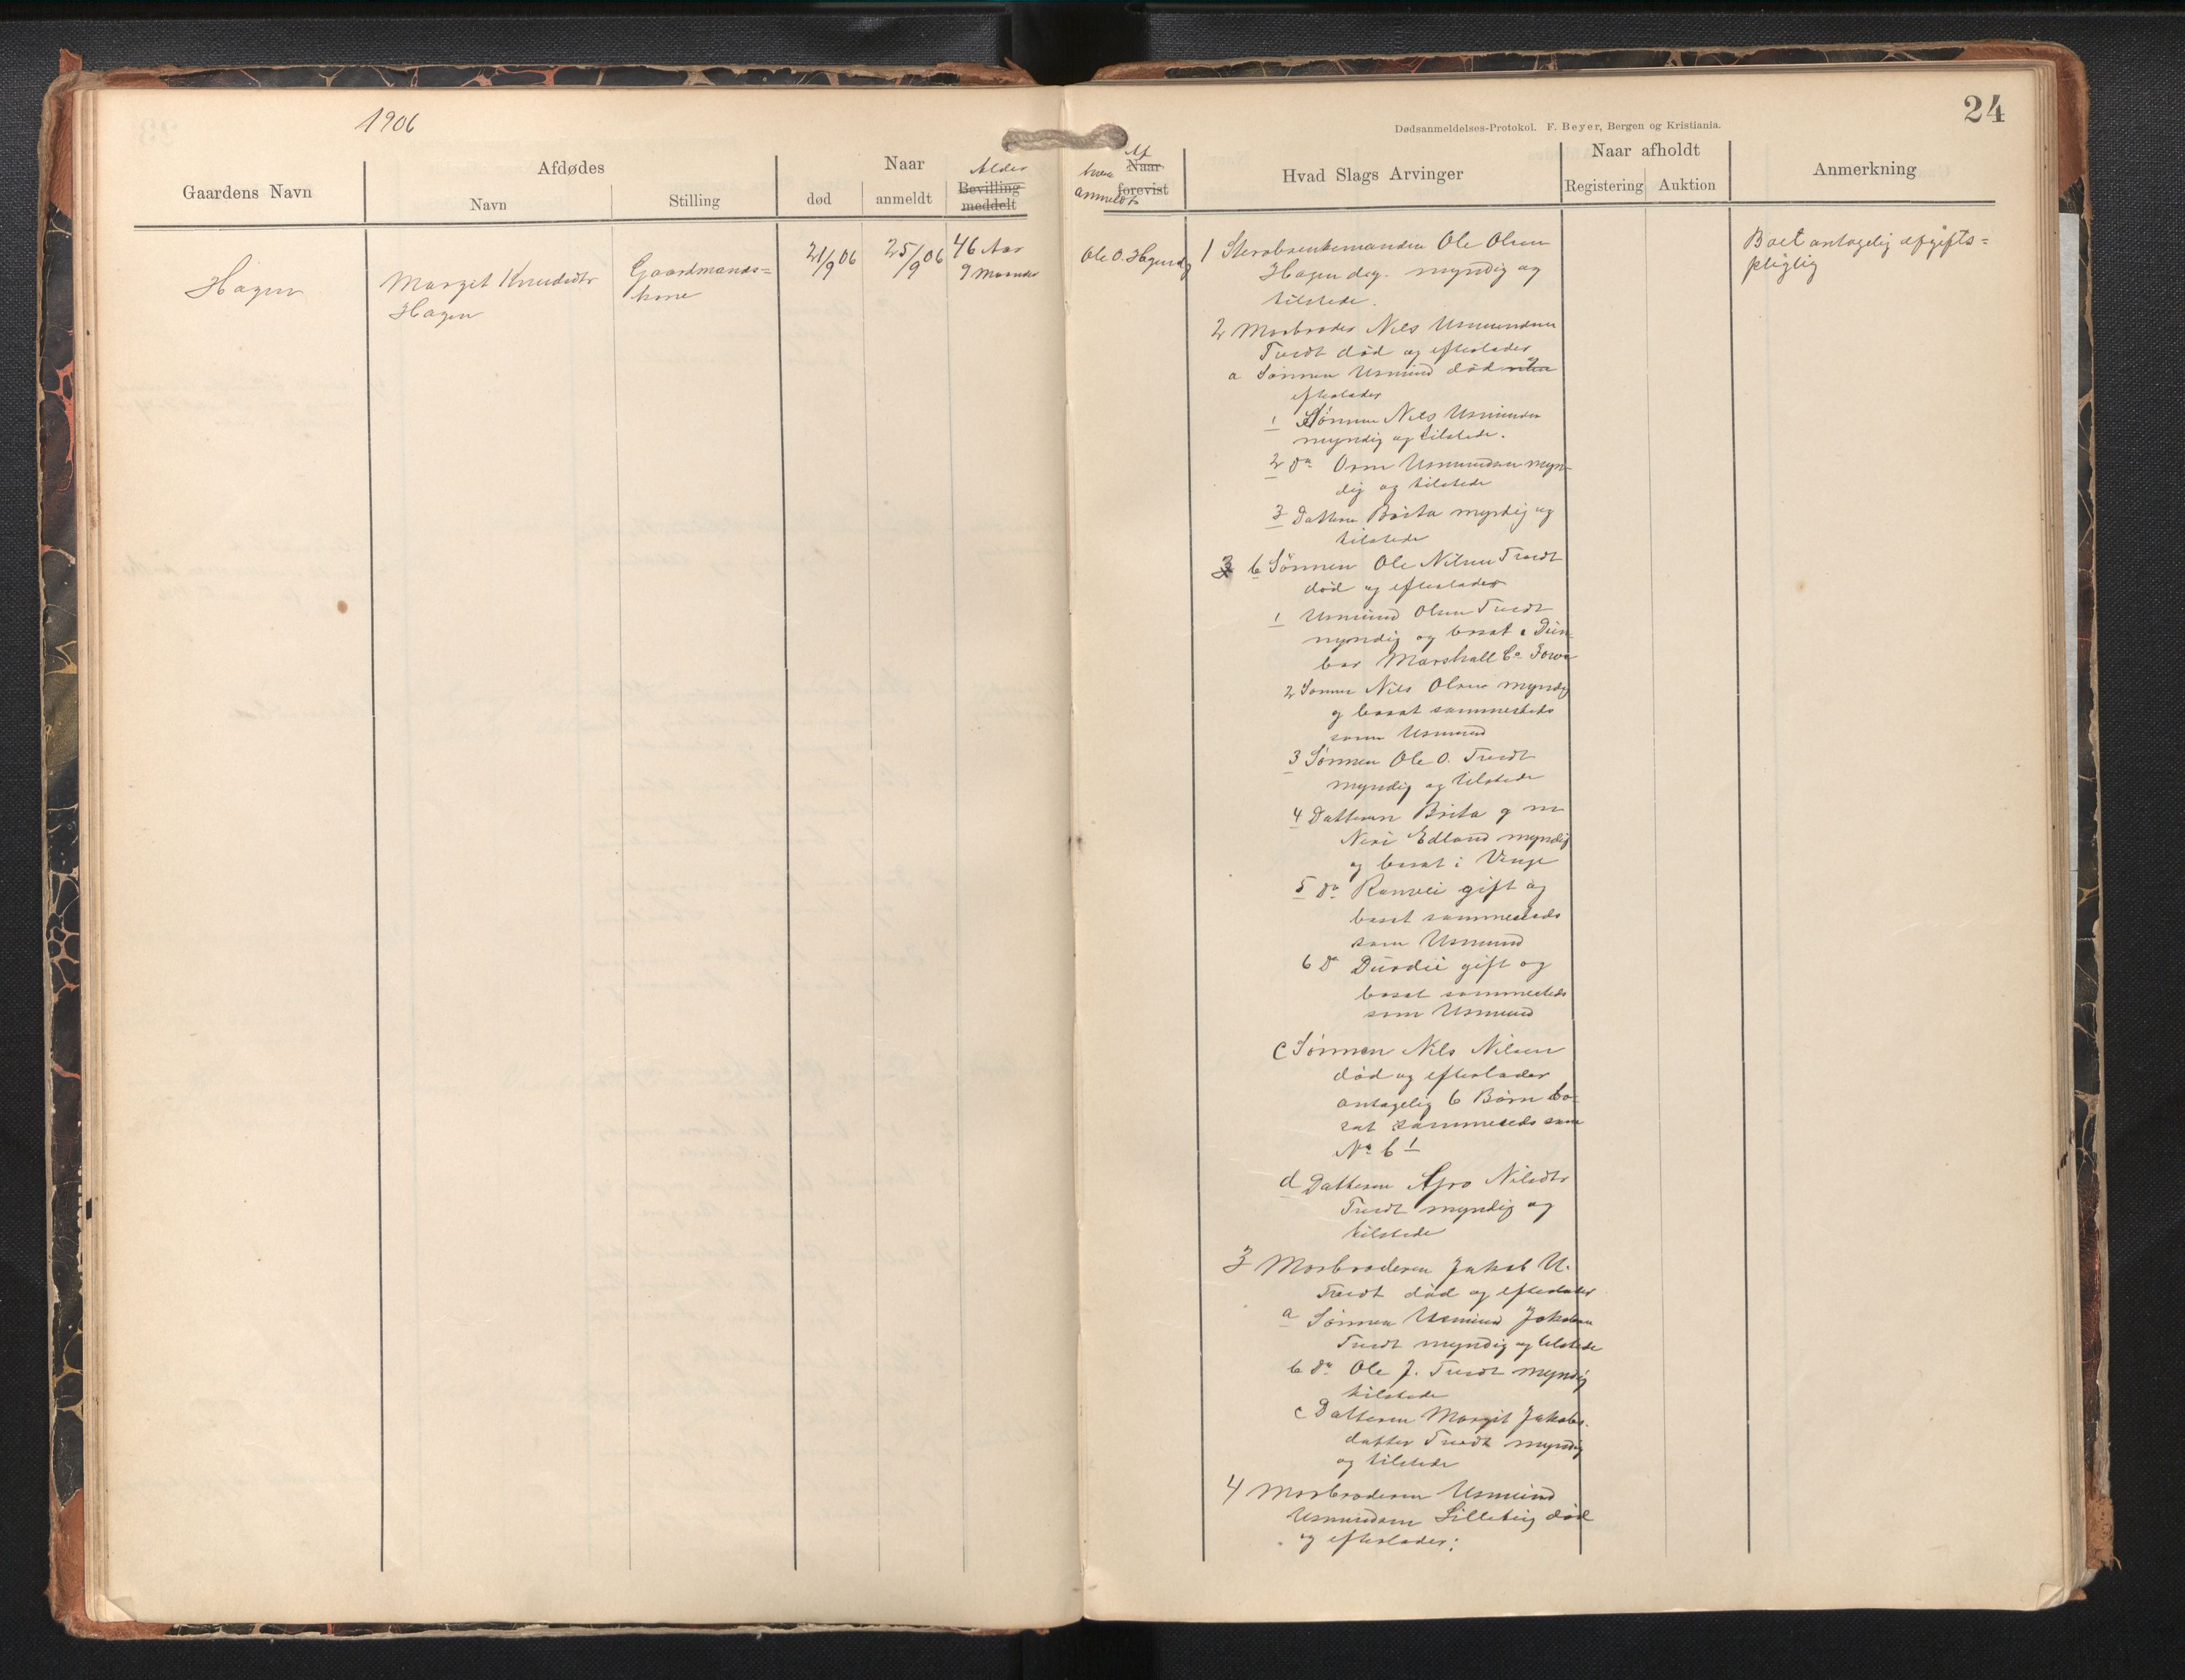 1906
24
Dødsanmeldelses-Protokol. F. Beyer, Bergen og Kristiania.
Gaardens Navn
Afdødes
Navn
Stilling
Naar
død
anmeldt
Alder
Bevilling
meddelt
Af
hvem
anmeldt
Naar
forevist
Hvad Slags Arvinger
Naar afholdt
Registering
Auktion
Anmerkning
Hagen
Marget Knudsdtr
Hagen
Gaardmands=
kone
21/9 06
25/9 06
46 Aar
9 Maander
Ole O. Hagen
1 Stervbsenkemanden Ole Olsen
Hagen myndig og
tilstede.
2 Morbroder Nils Usmundsen
Tvedt død og efterlader
a Sønnen Usmund død og
efterlader
1 Sønnen Nils Usmundsen
myndig og tilstede.
2 do Orm Usmundsen myn-
dig og tilstede
3 Datteren Brita myndig og
tilstede
b Sønnen Ole Nilsen Tvedt
død og efterlader
1 Usmund Olsen Tvedt
myndig og bosat i Dun-
bar Marshall Co Iowa
2 Sønnen Nils Olsen myndig
og bosat sammesteds
som Usmund
3 Sønnen Ole O. Tvedt
myndig og tilstede
4 Datteren Brita g m
Neri Edland myndig
og bosat i Vinje
5 do Ranvei gift og
bosat sammesteds
som Usmund
6 Do Durdei gift og
bosat sammesteds
som Usmund
c Sønnen Nils Nilsen
død og efterlader
antagelig 6 Børn bo-
sat sammesteds som
No b 1
d Datteren Afro Nilsdtr
Tvedt myndig og
tilstede
3 Morbroderen Jakob U.
Tvedt død og efterlader
a Sønnen Usmund Jakobsen
Tvedt myndig og tilstede
b do Ole J. Tvedt myndig
tilstede
c Datteren Margit Jakobs-
datter Tvedt myndig
og tilstede
4 Morbroderen Usmund
Usmundsen død
og efterlader:
Boet antagelig afgifts=
pligtig